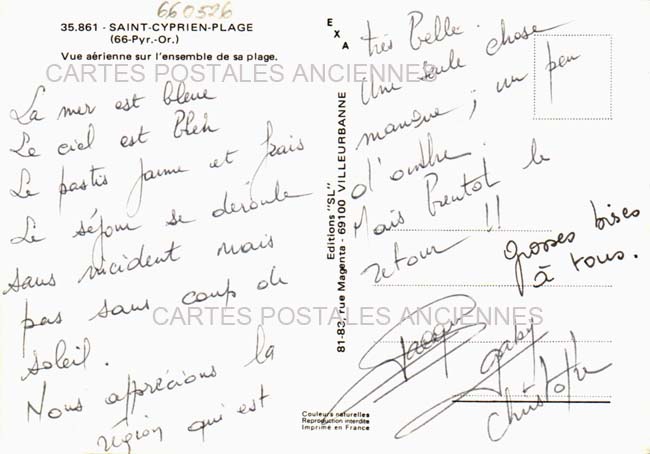 660526
35.861 - SAINT-CYPRIEN-PLAGE
(66-Pyr.-Or.)
Vue aérienne sur l'ensemble de sa plage.
CARTES POSTALES ANCIENNES
La mer est bleue
Le ciel est bleu
Le pastis jaune et frais
Le séjour se déroule
sans incident mais
pas sans coup de
soleil.
Nous apprécions la
région qui est
CARTES POSTALES ANCIENNES
EXA
Editions "SL"
81-83, rue Magenta - 69100 VILLEURBANNE
Couleurs naturelles
Reproduction interdite
Imprimé en France
très belle.
Une seule chose
manque ; un peu
d'ombre.
Mais bientôt le
retour !!
grosses bises
à tous.
Jacques
gaby
Christophe